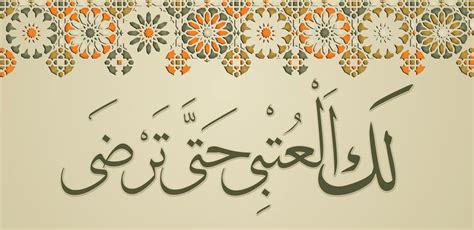 لَكَ اَلْعُتْبِى حَتَّى تَرْضَى